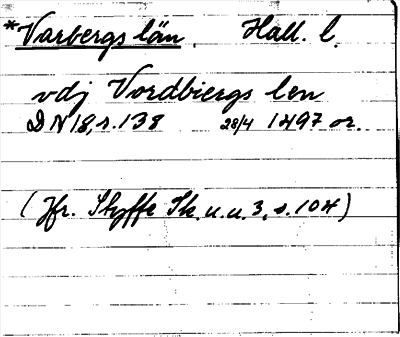 *Varbergs län. Hall. l.
vdj Vordbiergs len
DN 18, s. 138 28/4 1497 or.
(Jfr. Styffe Sk. u. u. 3, s. 104)